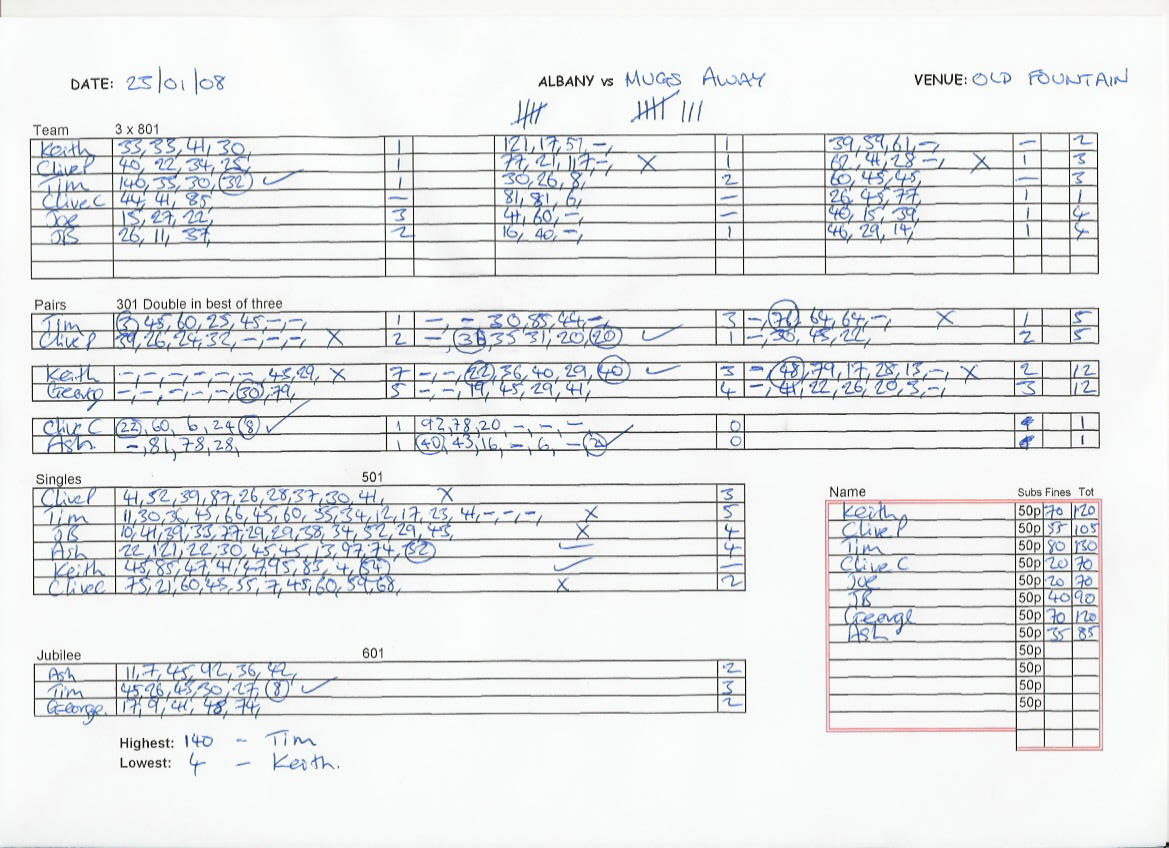 DATE: 25/01/08 ALBANY vs MUGS AWAY VENUE: OLD FOUNTAIN
Team 3 x 801
Keith 33, 33, 41, 30, 1 121, 17, 57, –, 1 39, 59, 61, –, – 2
Clive P 40, 22, 34, 25, 1 77, 21, 117, –, X 1 62, 41, 28 –, X 1 3
Tim 140, 35, 30, 32 ✓ 1 30, 26, 8, 2 60, 45, 45, — 3
Clive C 44, 41, 85 — 81, 81, 6, — 26, 45, 77, 1 1
Joe 15, 27, 22, 3 41, 60, –, — 40, 15, 39, 1 4
JB 26, 11, 37, 2 16, 40, –, 1 46, 29, 14, 1 4
Pairs 301 Double in best of three
Tim 3, 45, 60, 25, 45, –, –, 1 –, – 30, 85, 44, –, 3 –, 76, 64, 64, –, X 1 5
Clive P 39, 26, 24, 32, –, –, –, X 2 –, 35 31, 20, 20 ✓ 1 –, 30, 45, 22, 2 5
Keith –, –, –, –, –, –, 45, 29, X 7 –, –, 22, 36, 40, 29, 40 ✓ 3 – 48, 79, 17, 28, 13, –, X 2 12
George –, –, –, –, –, 30, 79, 5 –, –, 19, 45, 29, 41, 4 –, 41, 22, 26, 20, 3, –, 3 12
Clive C 22, 60, 6, 24, 8 ✓ 1 92, 78, 20 –, –, – 0 1
Ash. –, 81, 78, 28, 1 40, 43, 16, –, 6, – 2 ✓ 0 1
Singles 501
Clive P 41, 52, 39, 87, 26, 28, 37, 30, 41, X 3
Tim 11, 30, 36, 45, 66, 45, 60, 35, 34, 12, 17, 23, 41, –, –, –, X 5
JB 10, 41, 39, 33, 77, 29, 29, 38, 34, 52, 29, 43, X 4
Ash 22, 121, 22, 30, 45, 45, 13, 97, 74, 32 ✓ 4
Keith 45, 85, 47, 41, 47, 95, 83, 4, 54 ✓ —
Clive C 75, 21, 60, 45, 55, 7, 45, 60, 59, 68, X 2
Name Subs Fines Tot
Keith 50p 70 120
Clive P 50p 55 105
Tim 50p 80 130
Clive C 50p 20 70
Joe 50p 20 70
JB 50p 40 90
George 50p 70 120
Ash 50p 35 85
50p
50p
50p
50p
Jubilee 601
Ash 11, 7, 45, 92, 36, 42, 2
Tim 45, 26, 45, 30, 27, 8 ✓ 3
George. 17, 9, 41, 48, 74, 2
Highest: 140 – Tim
Lowest: 4 – Keith.